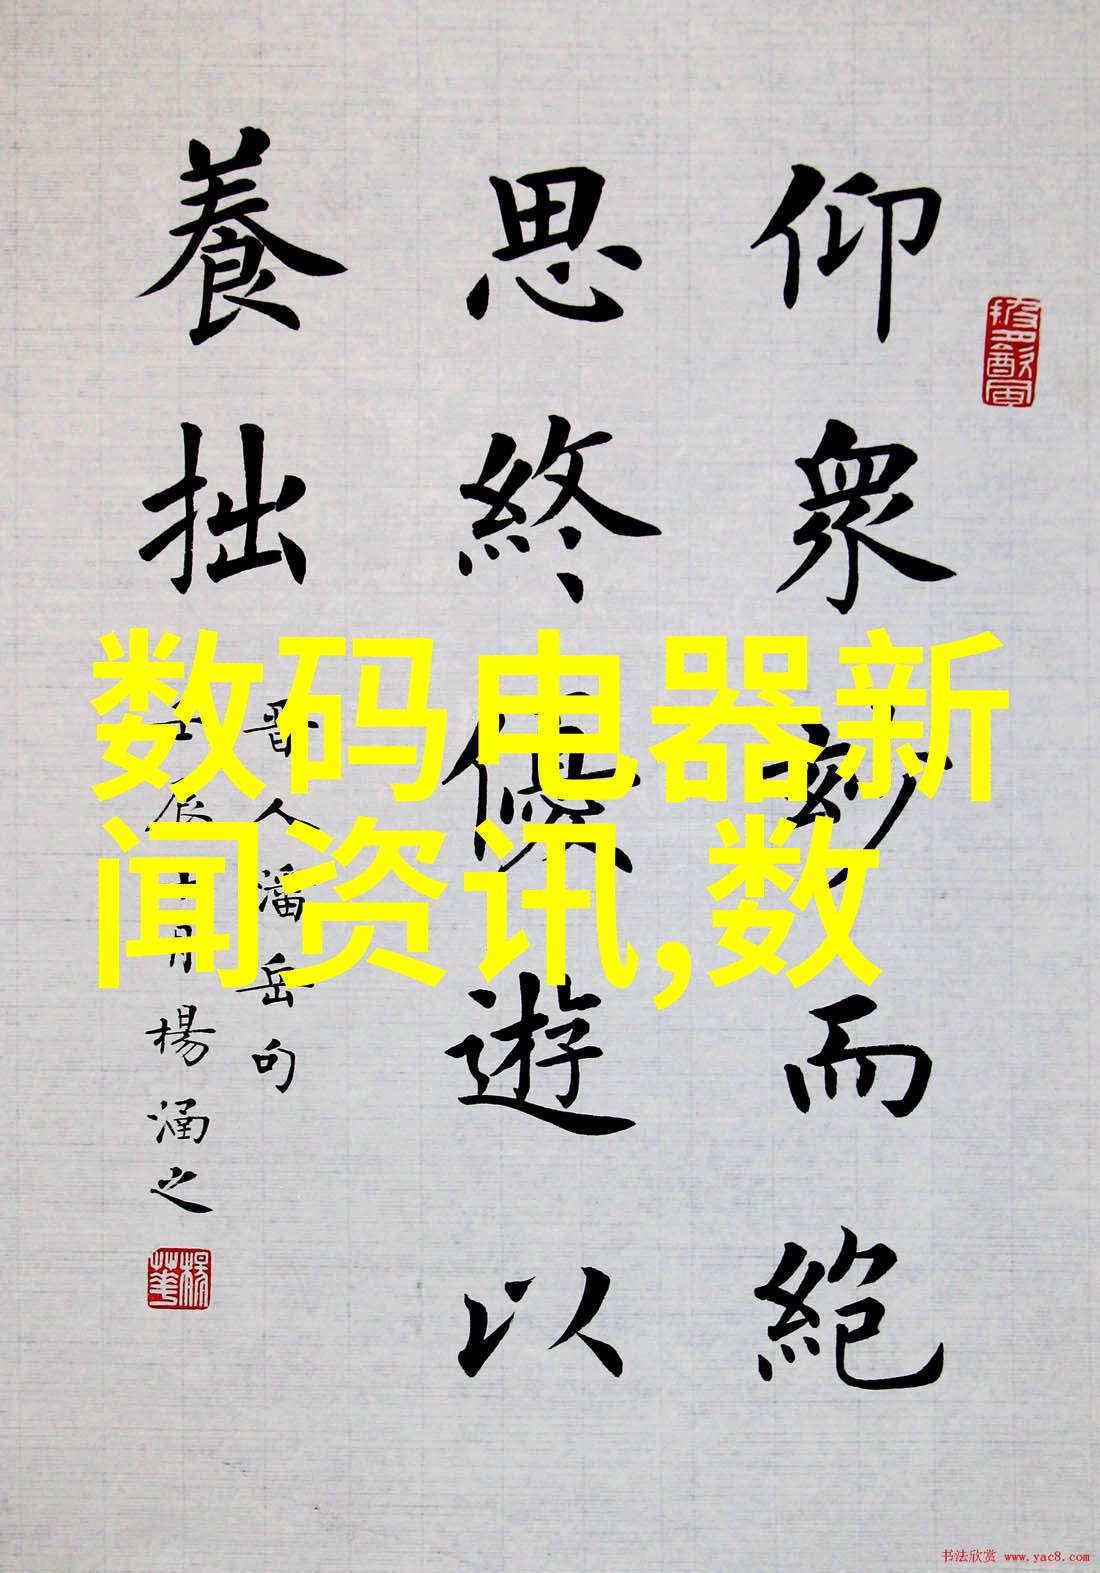 仰衆玅而絶
思終優遊以
養拙
晋人潘岳句
壬辰十月楊涵之
数码电器新
闻资讯,数
书法欣赏 www.yac8.com